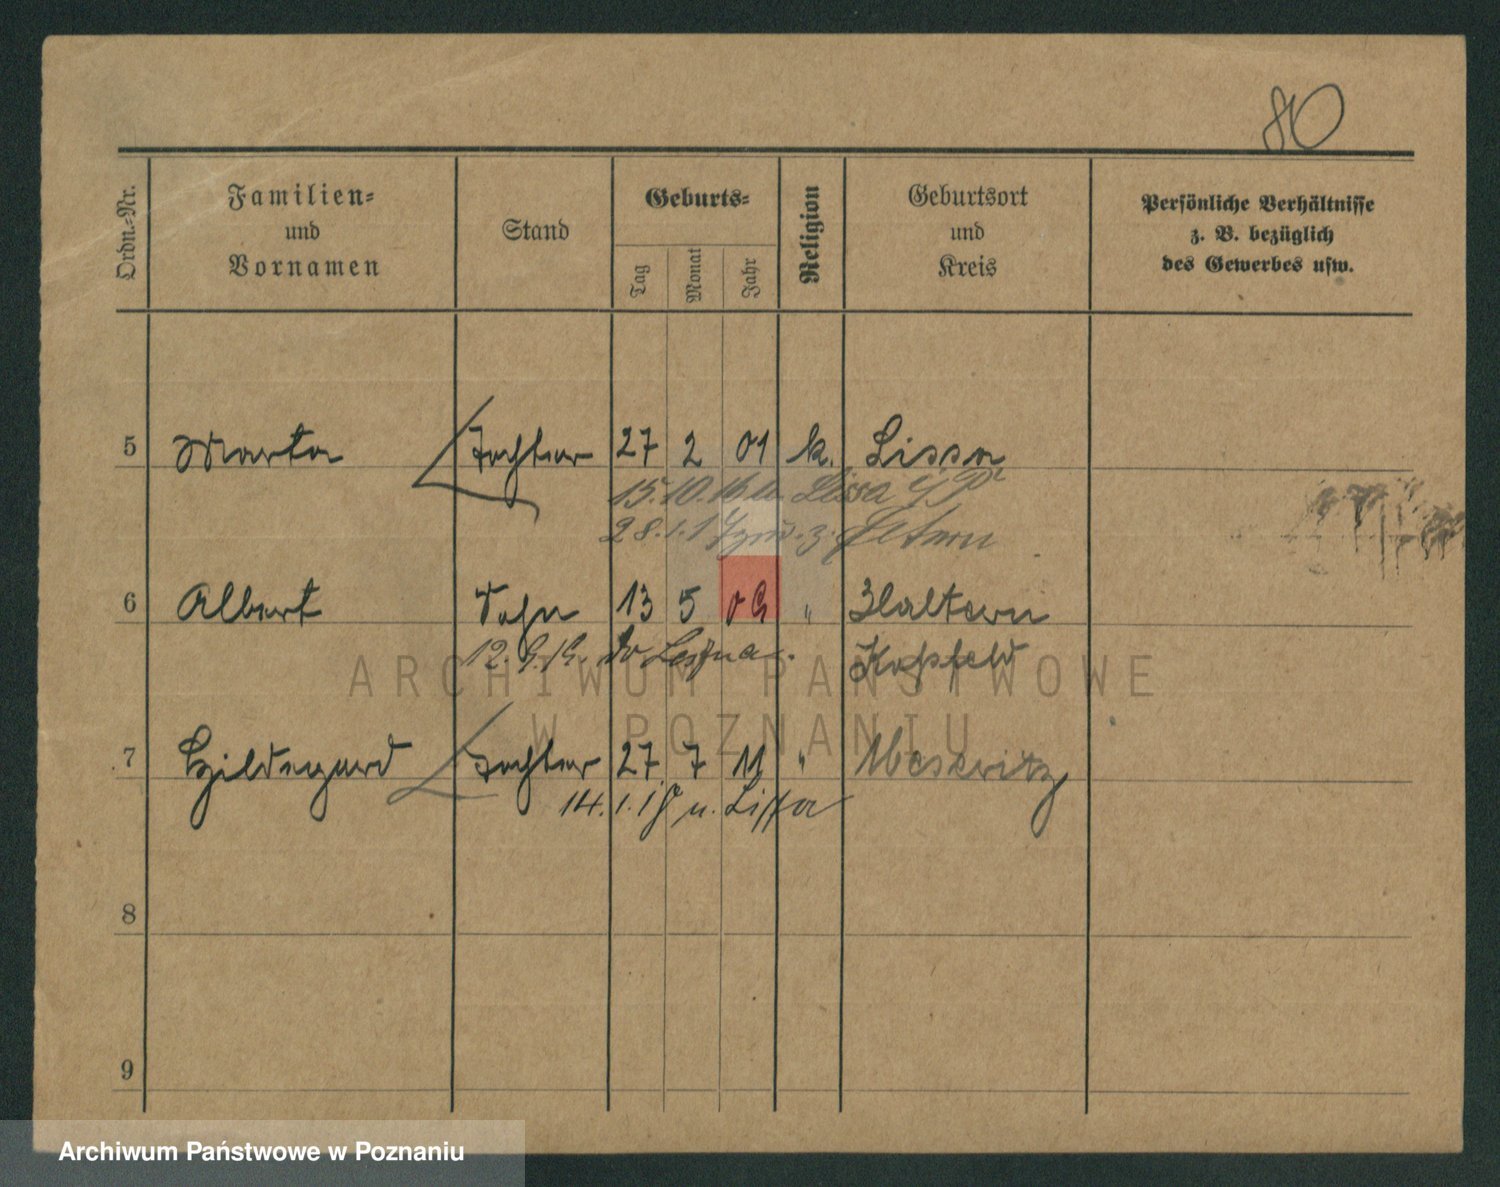 80
Ordn.-Nr.
Familien-
und
Vornamen
Stand
Geburts-
Tag
Monat
Jahr
Religion
Geburtsort
und
Kreis
Persönliche Verhältnisse
z. B. bezüglich
des Gewerbes usw.
5 Marta Tochter 27 2 01 k. Lissa
15.10. Lissa i/P
28.1.17 zur. z. Eltern
6 Albert Sohn 13 5 " Haltern
12. Koßfeld
ARCHIWUM PAŃSTWOWE
W POZNANIU
7 Hildegard Tochter 27 7 11 " Meseritz
14.1.18 n. Lissa
8
9
Archiwum Państwowe w Poznaniu